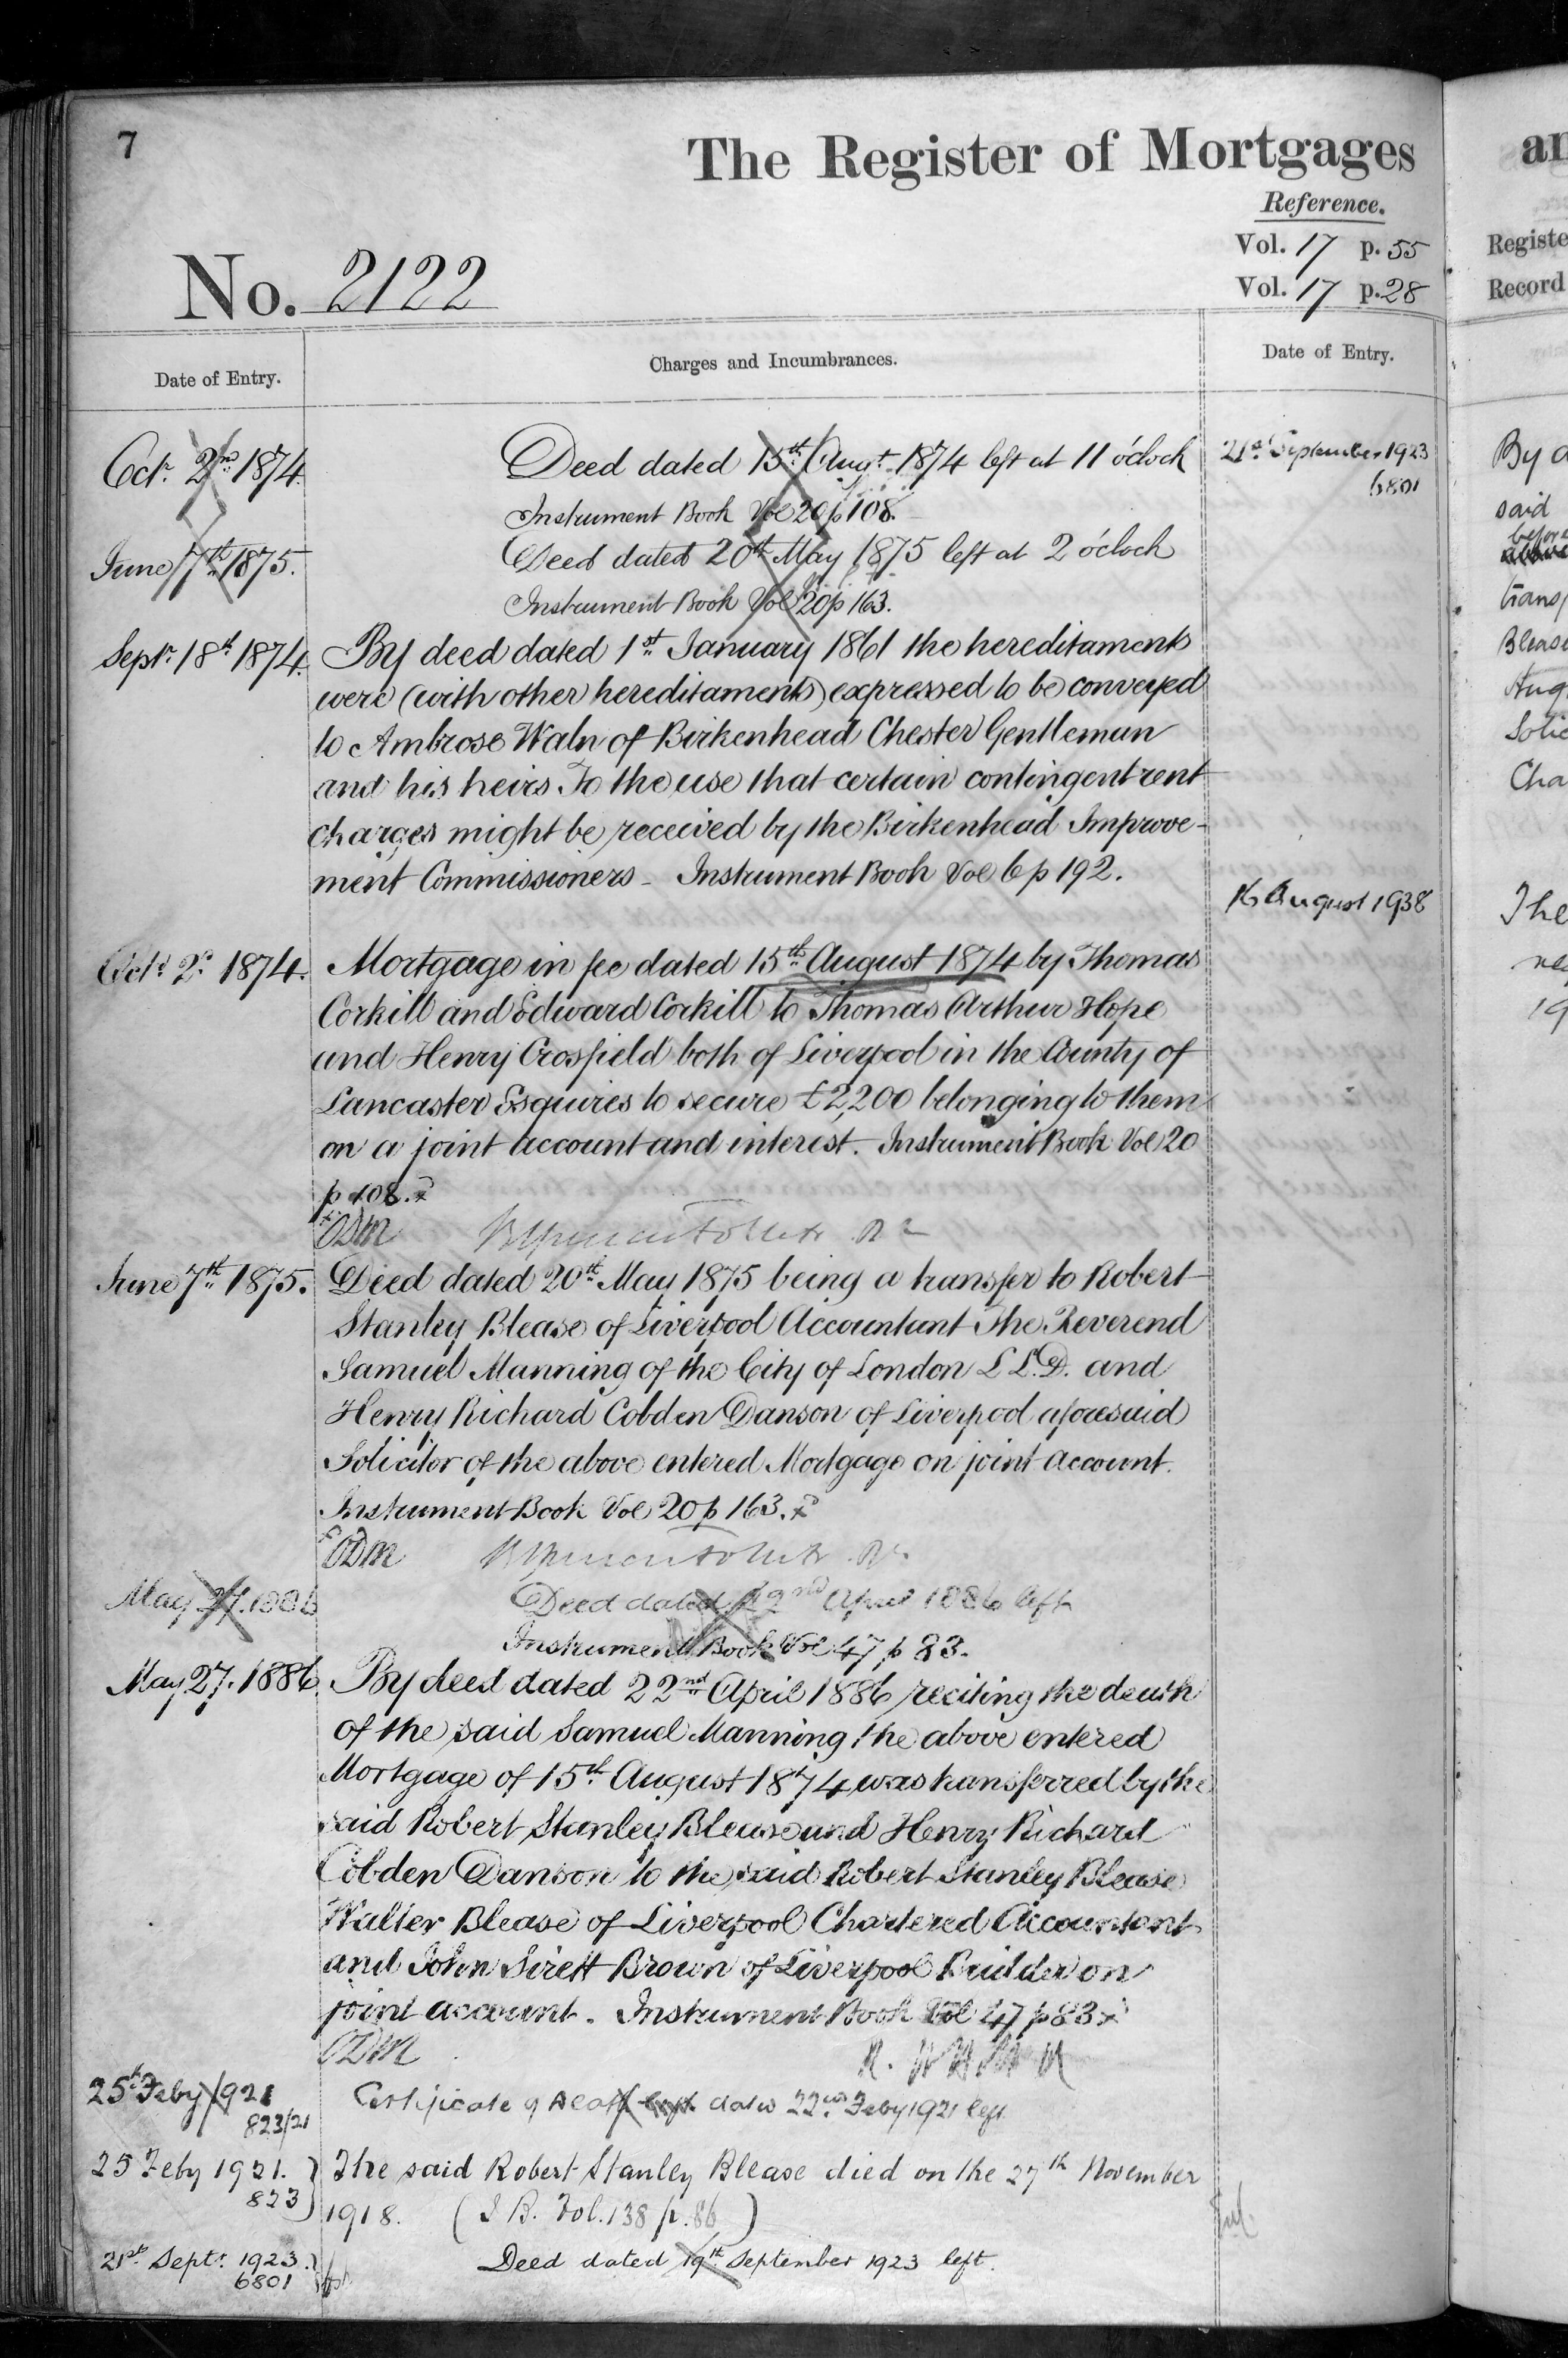 7
The Register of Mortgages
Reference.
Vol. 17 p. 55
Vol. 17 p. 28
No. 2122
Date of Entry.
Charges and Incumbrances.
Date of Entry.
Octr. 2nd 1874.
Deed dated 15th Augt. 1874 left at 11 o'clock
Instrument Book Vol 20 p 108.
June 7th 1875.
Deed dated 20th May 1875 left at 2 o'clock
Instrument Book Vol 20 p 163.
Septr. 18th 1874.
By deed dated 1st January 1861 the hereditaments
were (with other hereditaments) expressed to be conveyed
to Ambrose Waln of Birkenhead Chester Gentleman
and his heirs To the use that certain contingent rent
charges might be received by the Birkenhead Improve-
ment Commissioners - Instrument Book Vol 6 p 192.
Octr 2d 1874.
Mortgage in fee dated 15th August 1874 by Thomas
Corkill and Edward Corkill to Thomas Arthur Hope
and Henry Crosfield both of Liverpool in the County of
Lancaster Esquires to secure £2,200 belonging to them
on a joint account and interest. Instrument Book Vol 20
p 108. x
x ODM
June 7th 1875.
Deed dated 20th May 1875 being a transfer to Robert
Stanley Blease of Liverpool Accountant The Reverend
Samuel Manning of the City of London L L.D. and
Henry Richard Cobden Danson of Liverpool aforesaid
Solicitor of the above entered Mortgage on joint account.
Instrument Book Vol 20 p 163. x
x ODM
May 27. 1886
Deed dated 22nd April 1886 left
Instrument Book Vol 47 p 83.
May 27. 1886.
By deed dated 22nd April 1886 reciting the death
of the said Samuel Manning the above entered
Mortgage of 15th August 1874 was transferred by the
said Robert Stanley Blease and Henry Richard
Cobden Danson to the said Robert Stanley Blease
Walter Blease of Liverpool Chartered Accountant
and John Sirett Brown of Liverpool Builder on
joint account. Instrument Book Vol 47 p 83 x
ODM
25th Feby 1921
823/21
Certificate of Death left dated 22nd Feby 1921 left
25 Feby 1921.
823
The said Robert Stanley Blease died on the 27th November
1918. (I B. Vol. 138 p. 86)
21st Septr. 1923.
6801
Deed dated 19th September 1923 left.
21st September 1923
6801
16 August 1938
an
Registe
Record
By d
said
before
above
transf
Blease
Aug
Solic
Cha
The
19